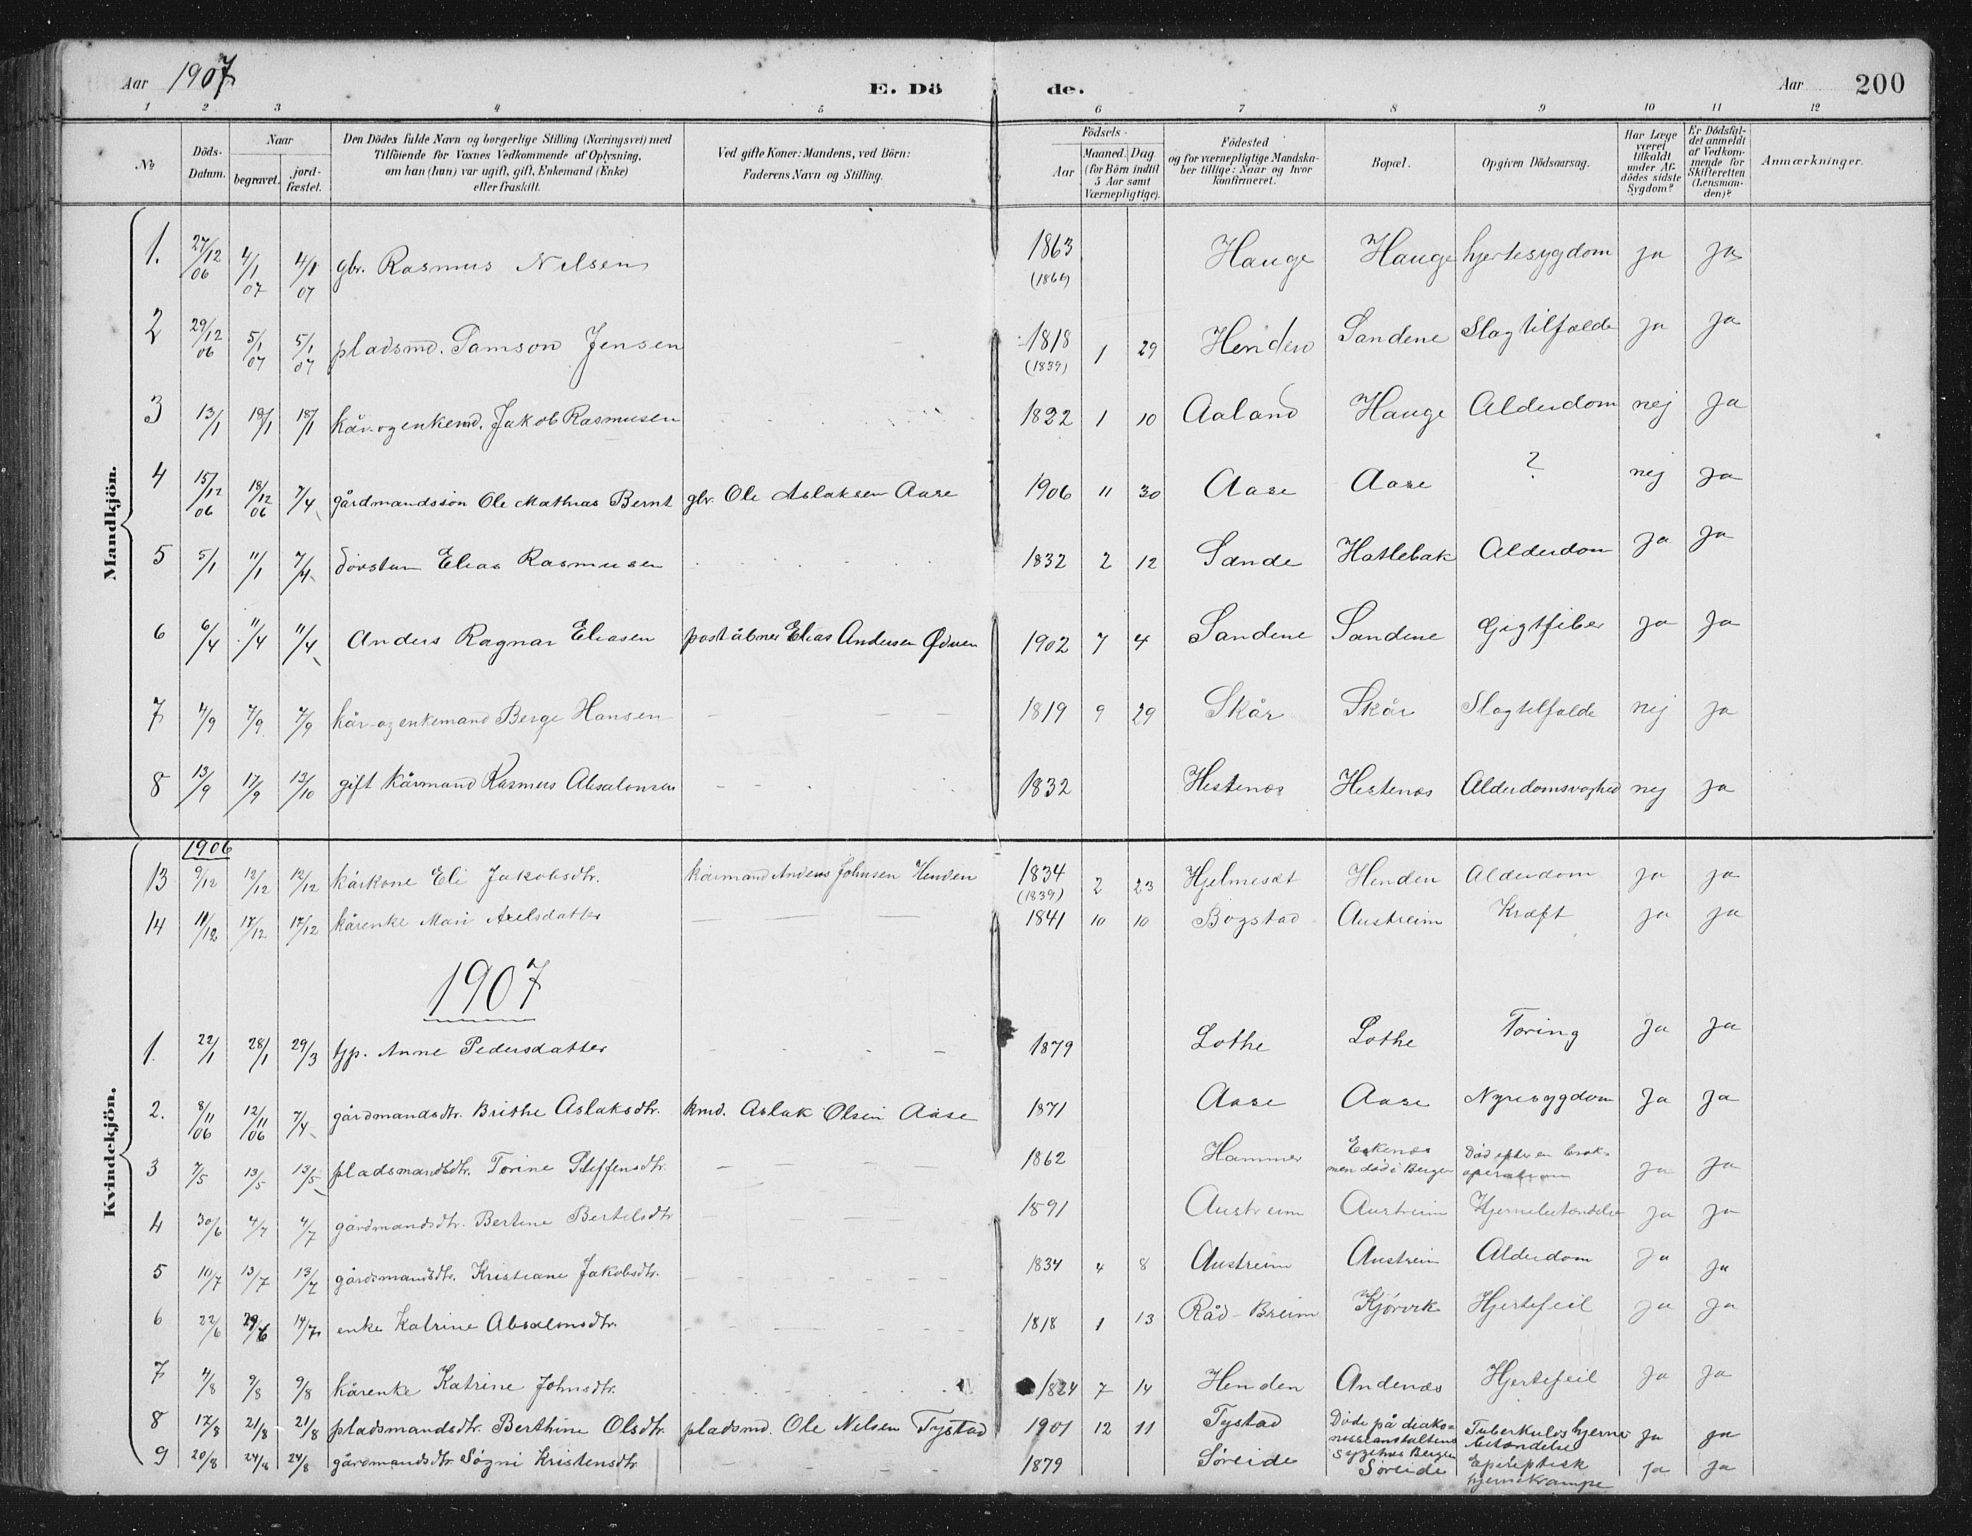 Aar 1907 E. Dö de. Aar 200
1 2 3 4 5 6 7 8 9 10 11 12
No
Döds-Datum.
Naar
begravet.
jord-fæstet.
Den Dödes fulde Navn og borgerlige Stilling (Næringsvei) med
Tilföiende for Voxnes Vedkommende af Oplysning,
om han (hun) var ugift, gift, Enkemand (Enke)
eller fraskilt.
Ved gifte Koner: Mandens, ved Börn:
Faderens Navn og Stilling.
Födsels-
Aar
Maaned. Dag
(for Börn indtil
5 Aar samt
Værnepligtige).
Födested
og for værnepligtige Mandska-
ber tillige: Naar og hvor
konfirmeret.
Bopæl.
Opgiven Dödsaarsag.
Har Læge
været
tilkaldt
under Af-
dödes sidste
Sygdom?
Er Dödsfal-
det anmeldt
af Vedkom-
mende for
Skifteretten
(Lensman-
den)?
Anmærkninger.
Mandkjön.
1. 27/12 06 4/1 07 4/1 07 gbr. Rasmus Nilsen 1863 (1860) Hauge Hauge hjertesygdom ja ja
2 29/12 06 5/1 07 5/1 07 pladsmd. Samson Jensen 1818 (1839) 1 29 Henden Sandene Slagtilfælde ja ja
3 13/1 19/1 18/1 kår- og enkemd. Jakob Rasmusen 1822 1 10 Aaland Hauge Alderdom nej ja
4 15/12 06 18/12 06 7/4 gårdmandssön Ole Mathias Bernt gbr. Ole Aslaksen Aase 1906 11 30 Aase Aase ? nej ja
5 5/1 11/1 7/4 Elias Rasmusen 1832 2 12 Sande Hatlebak Alderdom ja ja
6 6/4 11/4 11/4 Anders Ragnar Eliasen poståbner Elias Andersen 1902 7 4 Sandene Sandene Gigtfeber ja ja
7 4/9 7/9 7/9 kår- og enkemand Berge Hansen 1819 9 29 Skår Skår Slagtilfælde nej ja
8 13/9 17/9 13/10 gift kårmand Rasmus Absalonsen 1832 Hestenæs Hestenæs Alderdomsvaghed nej ja
Kvindekjön.
1906
13 9/12 12/12 12/12 kårkone Eli Jakobsdtr. kårmand Anders Johnsen Henden 1834 (1839) 2 23 Hjelmesæt Henden Alderdom ja ja
14 11/12 17/12 17/12 kårenke Mari Axelsdatter 1841 10 10 Bogstad Austreim Kræft ja ja
1907
1. 22/1 28/1 29/3 Anne Pedersdatter 1879 Lothe Lothe Tæring ja ja
2. 8/11 06 12/11 06 7/4 gårdmandsdtr. Brithe Aslaksdtr. kmd. Aslak Olsen Aase 1871 Aase Aase Nyresygdom ja ja
3 7/5 13/5 13/5 pladsmandsdtr. Torine Steffensdtr. 1862 Hammer Eikenæs men död i Bergen Död efter en brok-operation ja ja
4 30/6 4/7 4/7 gårdmandsdtr. Bertine Bertelsdtr 1891 Austreim Austreim Hjernebetændelse ja ja
5 10/7 13/7 13/7 gårdsmandsdtr. Kristiane Jakobsdtr. 1834 4 8 Austreim Austreim Alderdom ja ja
6 22/6 29/6 14/7 enke Katrine Absalonsdtr. 1818 1 13 Råd - Breim Kjörvik Hjertefeil ja ja
7 4/8 9/8 9/8 kårenke Katrine Johnsdtr. 1824 7 14 Henden Andenæs Hjertefeil ja ja
8 17/8 21/8 21/8 pladsmandsdtr. Berthine Olsdtr. pladsmd. Ole Nilsen Tystad 1901 12 11 Tystad Döde på diako-nisseanstaltens sygehus Bergen Tuberkuløs hjerne betændelse ja ja
9 20/8 24/8 24/8 gårdmandsdtr Søgni Kristensdtr. 1879 Søreide Søreide Epileptisk hjernekrampe ja ja